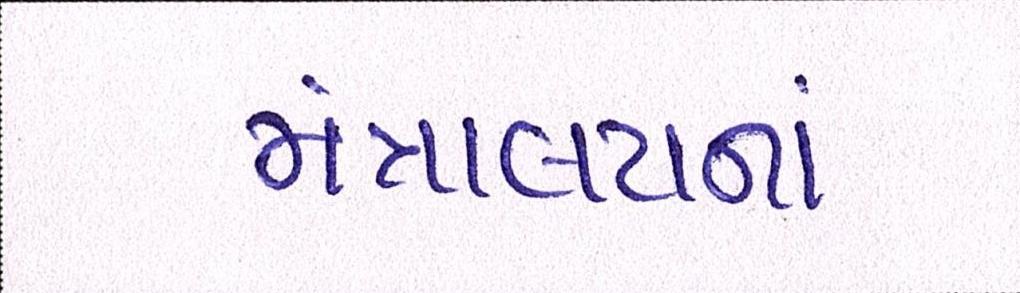 મંત્રાલયનાં